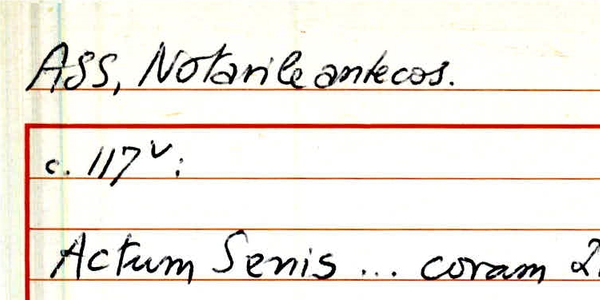 ASS, Notarile antecos.
c. 117v:
Actum Senis ... coram 2